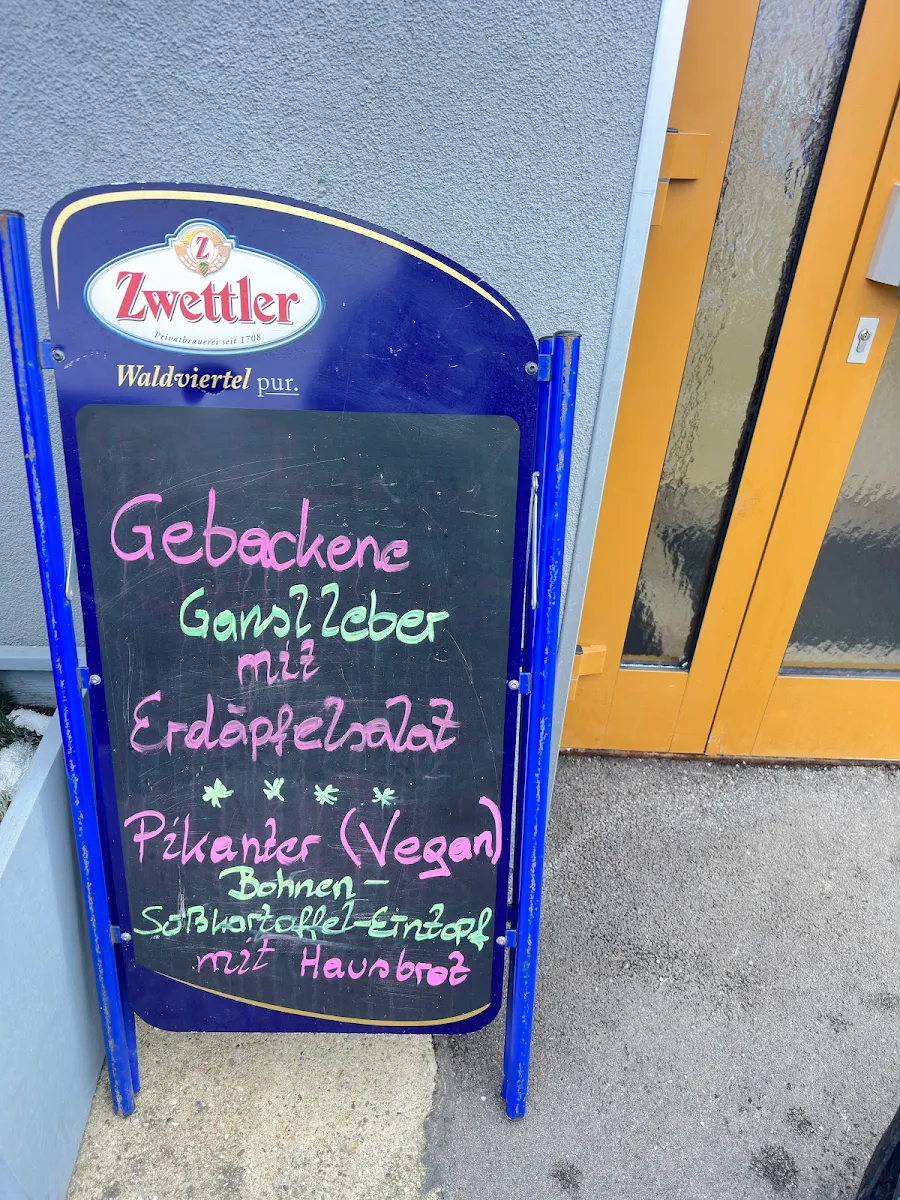 Z
Zwettler
Privatbrauerei seit 1708
Waldviertel pur.
Gebackene
Gansl leber
mit
Erdäpfelsalat
Pikanter (Vegan)
Bohnen-
Süßkartoffel-Eintopf
mit Hausbrot